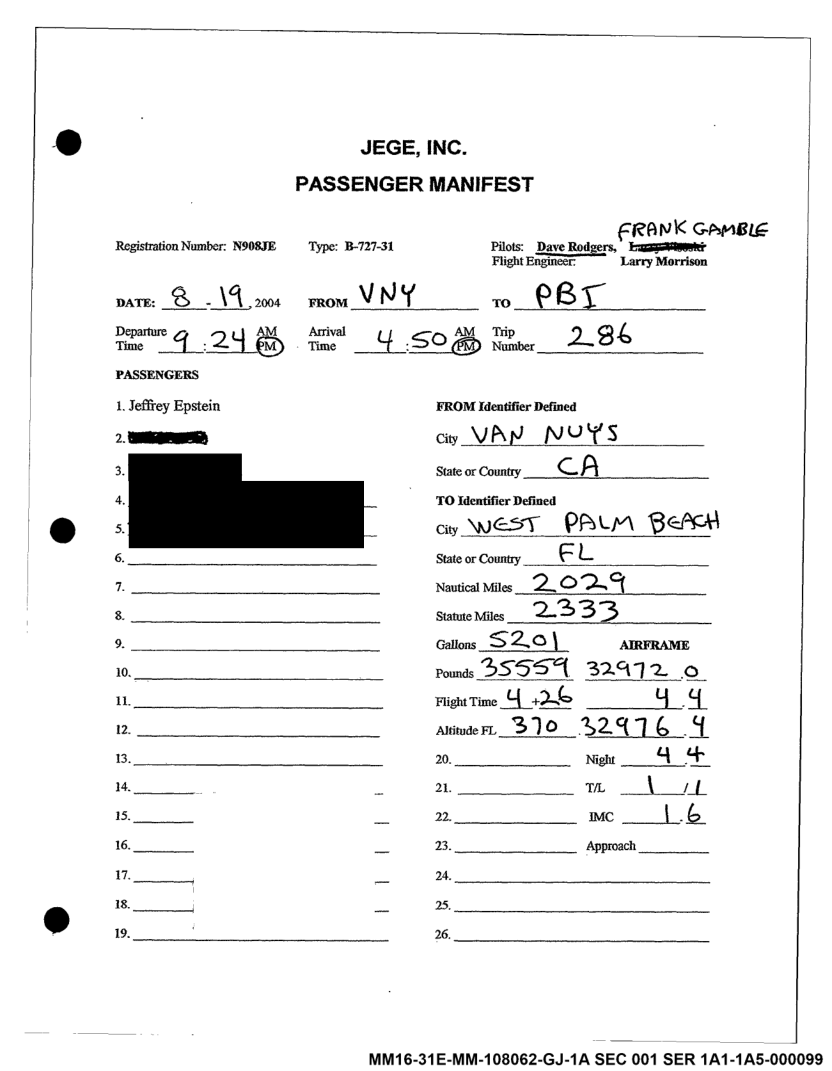 JEGE, INC.
PASSENGER MANIFEST
FRANK GAMBLE
Registration Number: N908JE Type: B-727-31 Pilots: Dave Rodgers,
Flight Engineer: Larry Morrison
DATE: 8 - 19, 2004 FROM VNY TO PBI
Departure Time 9 : 24 AM PM Arrival Time 4 : 50 AM PM Trip Number 286
PASSENGERS
1. Jeffrey Epstein
FROM Identifier Defined
2.
City VAN NUYS
3.
State or Country CA
4.
TO Identifier Defined
5.
City WEST PALM BEACH
6.
State or Country FL
7.
Nautical Miles 2029
8.
Statute Miles 2333
9.
Gallons 5201 AIRFRAME
10.
Pounds 35559 32972 .0
11.
Flight Time 4 +26 4 .4
12.
Altitude FL 370 32976 .4
13.
20. Night 4 .4
14.
21. T/L 1 / 1
15.
22. IMC 1 .6
16.
23. Approach
17.
24.
18.
25.
19.
26.
MM16-31E-MM-108062-GJ-1A SEC 001 SER 1A1-1A5-000099